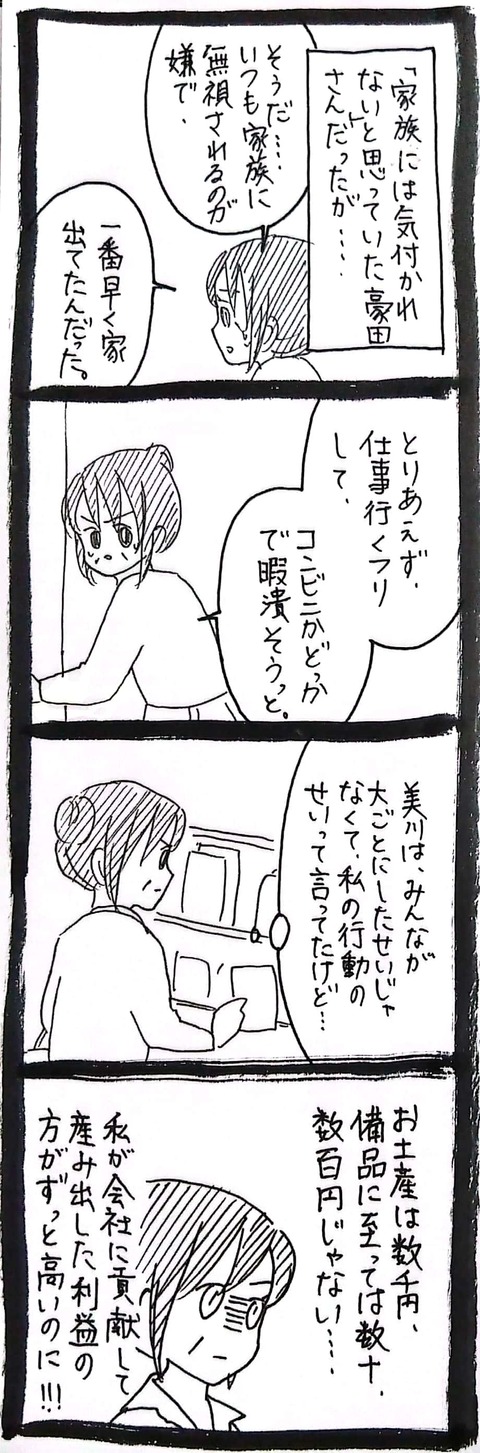 「家族には気付かれ
ないと思っていた豪田
さんだったが‥‥
そうだ‥‥
いつも家族に
無視されるのが
嫌で、
一番早く家
出てたんだった。
とりあえず、
仕事行くフリ
して、
コンビニかどっか
で暇潰そうっと。
美川は、みんなが
大ごとにしたせいじゃ
なくて、私の行動の
せいって言ってたけど…
お土産は数千円、
備品に至っては数十、
数百円じゃない‥‥
私が会社に貢献して
産み出した利益の
方がずっと高いのに!!!